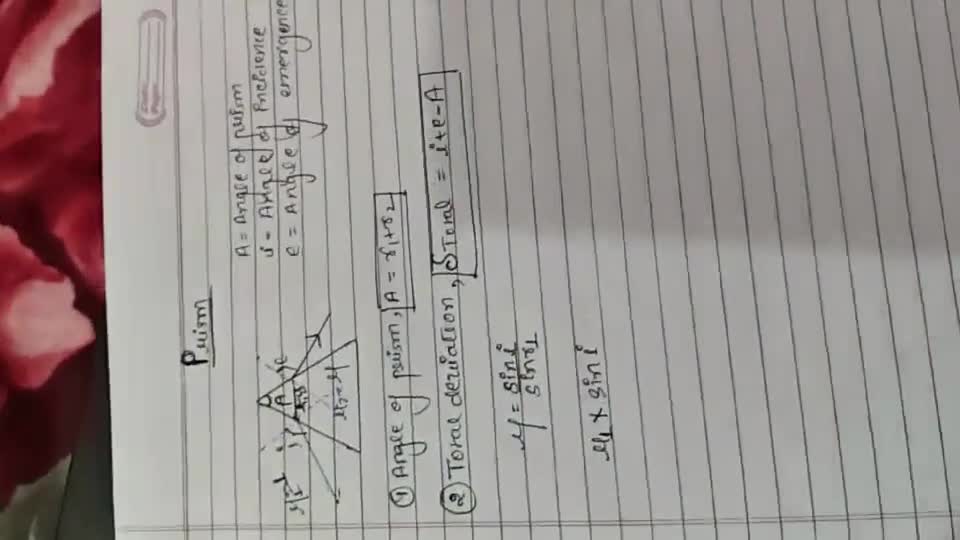 Prism
A = Angle of prism
i = Angle of Incidence
e = Angle of emergence
A
e
μ2=μ
① Angle of prism, A = r1+r2
② Total derivation, δTotal = i+e-A
μ = sin i / sin r1
μ1 × sin i